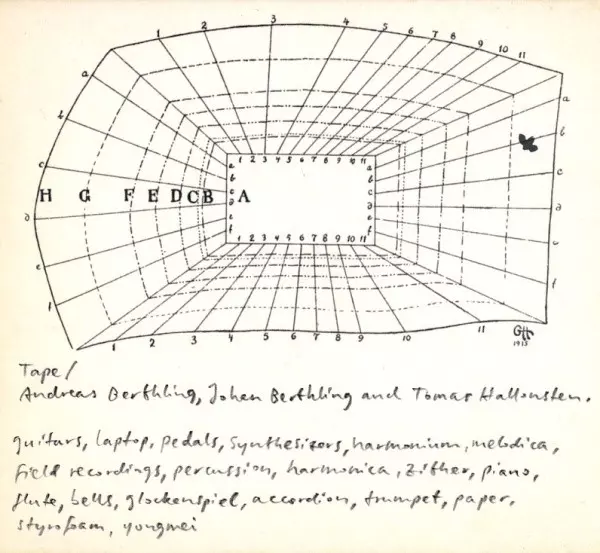 1 2 3 4 5 6 7 8 9 10 11
a a
b b
c c
d d
e e
f f
1 2 3 4 5 6 7 8 9 10 11
a a
b b
c c
H G F E D C B A
d d
e e
f f
1 2 3 4 5 6 7 8 9 10 11
1 2 3 4 5 6 7 8 9 10 11
GH
1915
Tape /
Andreas Berthling, Johan Berthling and Tomas Hallonsten.
guitars, laptop, pedals, synthesizers, harmonium, melodica,
field recordings, percussion, harmonica, zither, piano,
flute, bells, glockenspiel, accordion, trumpet, paper,
styrofoam, yongmei